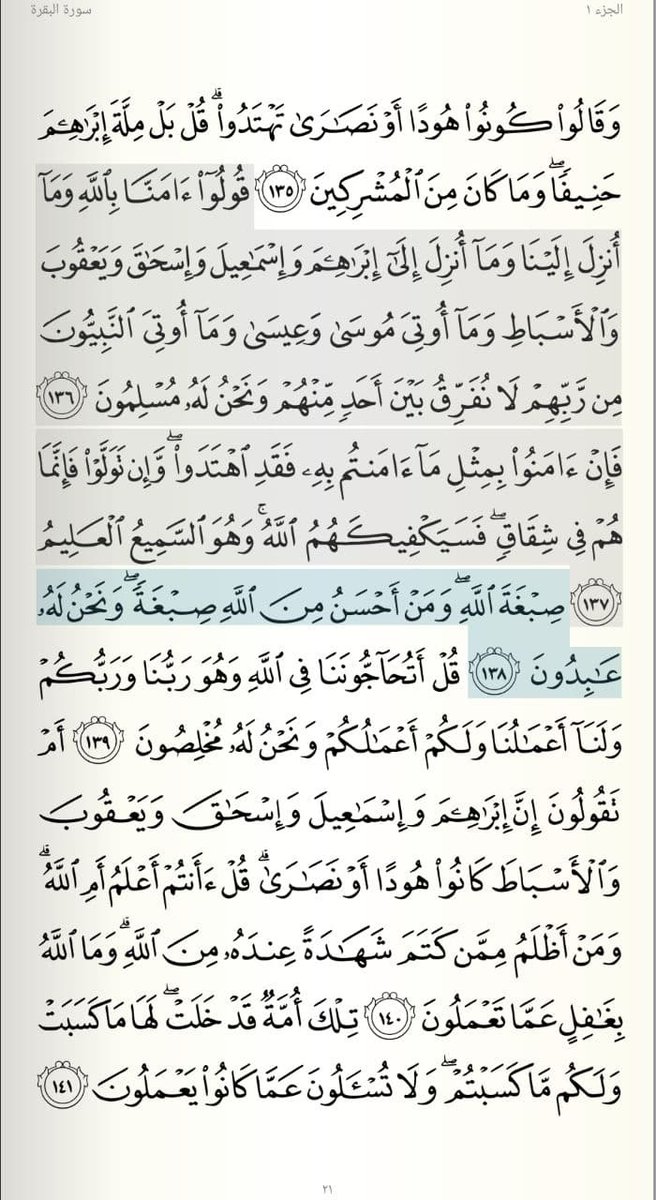 الجزء ١
سورة البقرة
وَقَالُوا۟ كُونُوا۟ هُودًا أَوْ نَصَـٰرَىٰ تَهْتَدُوا۟ ۗ قُلْ بَلْ مِلَّةَ إِبْرَٰهِـۧمَ
حَنِيفًا ۖ وَمَا كَانَ مِنَ ٱلْمُشْرِكِينَ ١٣٥ قُولُوٓا۟ ءَامَنَّا بِٱللَّهِ وَمَآ
أُنزِلَ إِلَيْنَا وَمَآ أُنزِلَ إِلَىٰٓ إِبْرَٰهِـۧمَ وَإِسْمَـٰعِيلَ وَإِسْحَـٰقَ وَيَعْقُوبَ
وَٱلْأَسْبَاطِ وَمَآ أُوتِىَ مُوسَىٰ وَعِيسَىٰ وَمَآ أُوتِىَ ٱلنَّبِيُّونَ
مِن رَّبِّهِمْ لَا نُفَرِّقُ بَيْنَ أَحَدٍ مِّنْهُمْ وَنَحْنُ لَهُۥ مُسْلِمُونَ ١٣٦
فَإِنْ ءَامَنُوا۟ بِمِثْلِ مَآ ءَامَنتُم بِهِۦ فَقَدِ ٱهْتَدَوا۟ ۖ وَّإِن تَوَلَّوْا۟ فَإِنَّمَا
هُمْ فِى شِقَاقٍ ۖ فَسَيَكْفِيكَهُمُ ٱللَّهُ ۚ وَهُوَ ٱلسَّمِيعُ ٱلْعَلِيمُ
١٣٧ صِبْغَةَ ٱللَّهِ ۖ وَمَنْ أَحْسَنُ مِنَ ٱللَّهِ صِبْغَةً ۖ وَنَحْنُ لَهُۥ
عَـٰبِدُونَ ١٣٨ قُلْ أَتُحَآجُّونَنَا فِى ٱللَّهِ وَهُوَ رَبُّنَا وَرَبُّكُمْ
وَلَنَآ أَعْمَـٰلُنَا وَلَكُمْ أَعْمَـٰلُكُمْ وَنَحْنُ لَهُۥ مُخْلِصُونَ ١٣٩ أَمْ
تَقُولُونَ إِنَّ إِبْرَٰهِـۧمَ وَإِسْمَـٰعِيلَ وَإِسْحَـٰقَ وَيَعْقُوبَ
وَٱلْأَسْبَاطَ كَانُوا۟ هُودًا أَوْ نَصَـٰرَىٰ ۗ قُلْ ءَأَنتُمْ أَعْلَمُ أَمِ ٱللَّهُ ۗ
وَمَنْ أَظْلَمُ مِمَّن كَتَمَ شَهَـٰدَةً عِندَهُۥ مِنَ ٱللَّهِ ۗ وَمَا ٱللَّهُ
بِغَـٰفِلٍ عَمَّا تَعْمَلُونَ ١٤٠ تِلْكَ أُمَّةٌ قَدْ خَلَتْ ۖ لَهَا مَا كَسَبَتْ
وَلَكُم مَّا كَسَبْتُمْ ۖ وَلَا تُسْـَٔلُونَ عَمَّا كَانُوا۟ يَعْمَلُونَ ١٤١
٢١